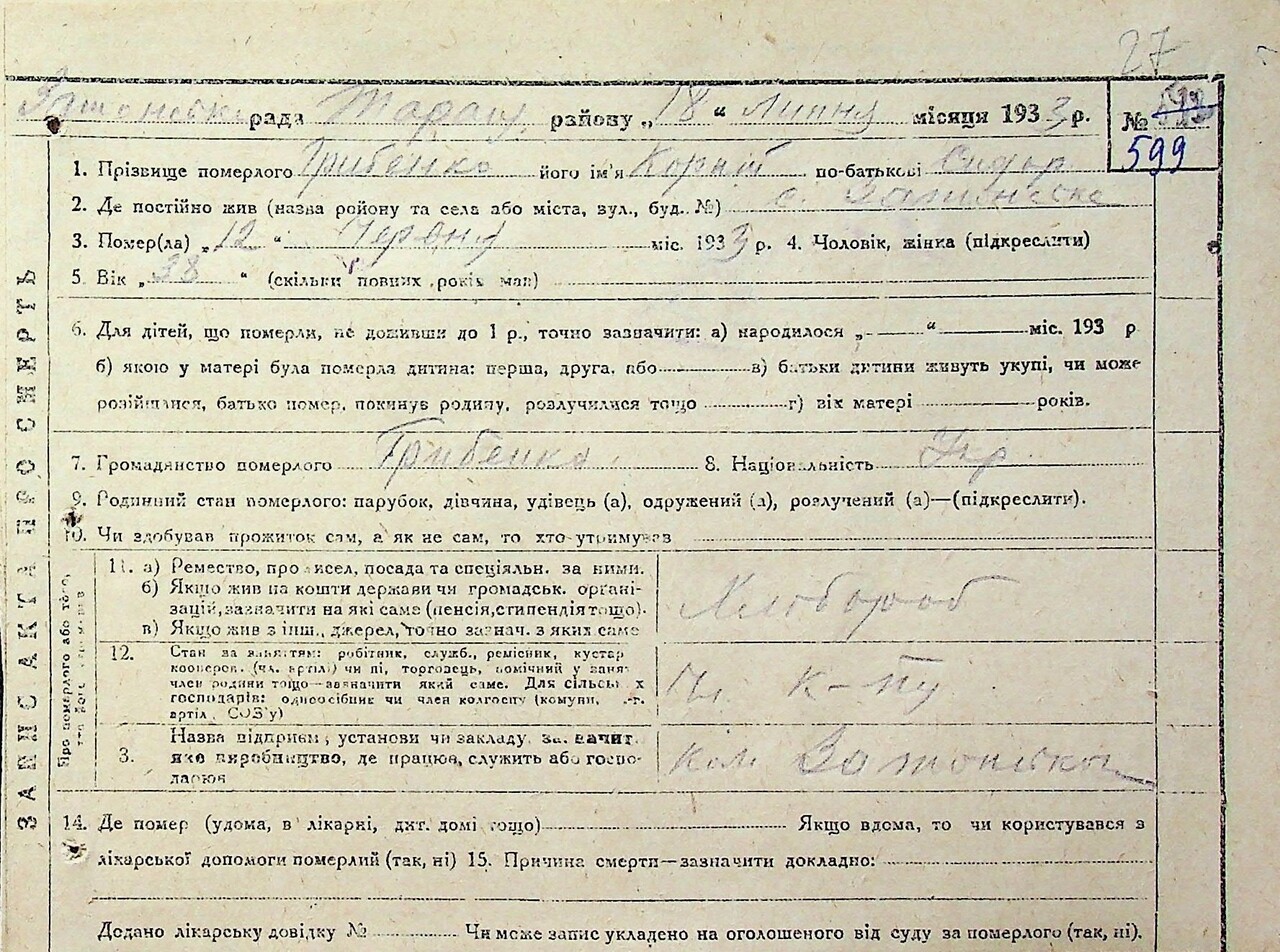 27
рада Таращ. району „18 “ Липня місяця 1933 р. №
599
1. Прізвище померлого Грибенко його ім'я Корній по-батькові Сидор
2. Де постійно жив (назва ройону та села або міста, вул., буд. №) с.
3. Помер(ла) „12 “ Червня міс. 1933 р. 4. Чоловік, жінка (підкреслити)
5. Вік „ 38 “ (скільки повних років мав)
6. Для дітей, що померли, не доживши до 1 р., точно зазначити: а) народилося „ “ міс. 193 р
б) якою у матері була померла дитина: перша, друга, або в) батьки дитини живуть укупі, чи може
розійшлися, батько помер, покинув родину, розлучилися тощо г) вік матері років.
7. Громадянство померлого Грибенко 8. Національність Укр
9. Родинний стан померлого: парубок, дівчина, удівець (а), одружений (а), розлучений (а)—(підкреслити).
10. Чи здобував прожиток сам, а як не сам, то хто утримував
ЗАПИС АКТА ПРО СМЕРТЬ
Про померлого або того,
11. а) Ремество, про исел, посада та спеціяльн. за ними.
б) Якщо жив на кошти держави чи громадськ. органі-
зацій, зазначити на які саме (пенсія, стипендія тощо).
в) Якщо жив з інш., джерел, точно зазнач. з яких саме
Хлібороб
12. Стан за заняттям: робітник, служб., ремісник, кустар
кооперов. (чл. артілі) чи ні, торговець, помічний у заня-
член родини тощо—зазначити який саме. Для сільськ х
господарів: одноосібник чи член колгоспу (комуни, с.-г.
артіл, СОЗ'у)
Чл. к-пу
3. Назва підприєм , установи чи закладу, зазначит.
яке виробництво, де працює, служить або госпо-
дарює
14. Де помер (удома, в лікарні, дит. домі тощо) Якщо вдома, то чи користувався з
лікарської допомоги померлий (так, ні) 15. Причина смерти—зазначити докладно:
Додано лікарську довідку № Чи може запис укладено на оголошеного від суду за померлого (так, ні).